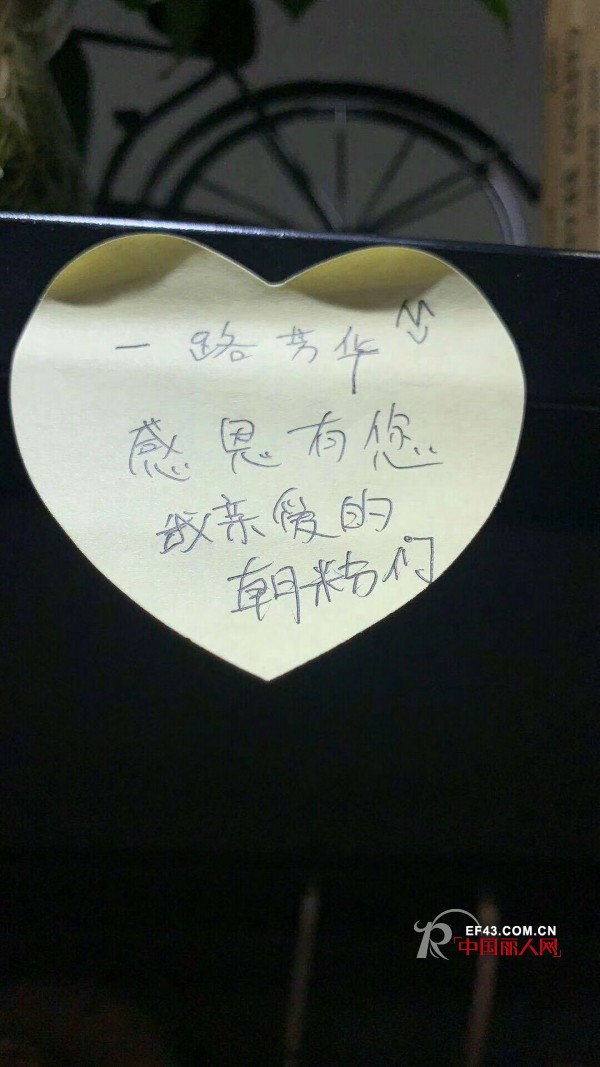 一路芳华
感恩有您
我亲爱的
朝粉们
EF43.COM.CN
「中国丽人网」